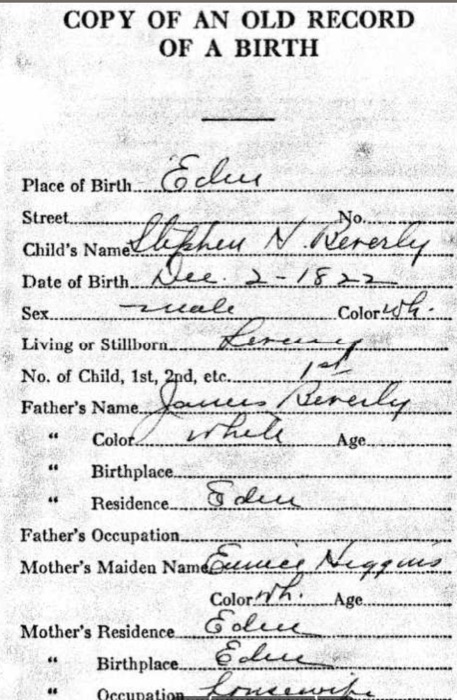 COPY OF AN OLD RECORD
OF A BIRTH
Place of Birth Eden
Street No.
Child's Name Stephen N. Beverly
Date of Birth Dec. 2 - 1822
Sex male Color Wh.
Living or Stillborn Living
No. of Child, 1st, 2nd, etc. 1st
Father's Name James Beverly
" Color White Age
" Birthplace
" Residence Eden
Father's Occupation
Mother's Maiden Name Eunice Higgins
Color Wh. Age
Mother's Residence Eden
" Birthplace Eden
" Occupation housewife